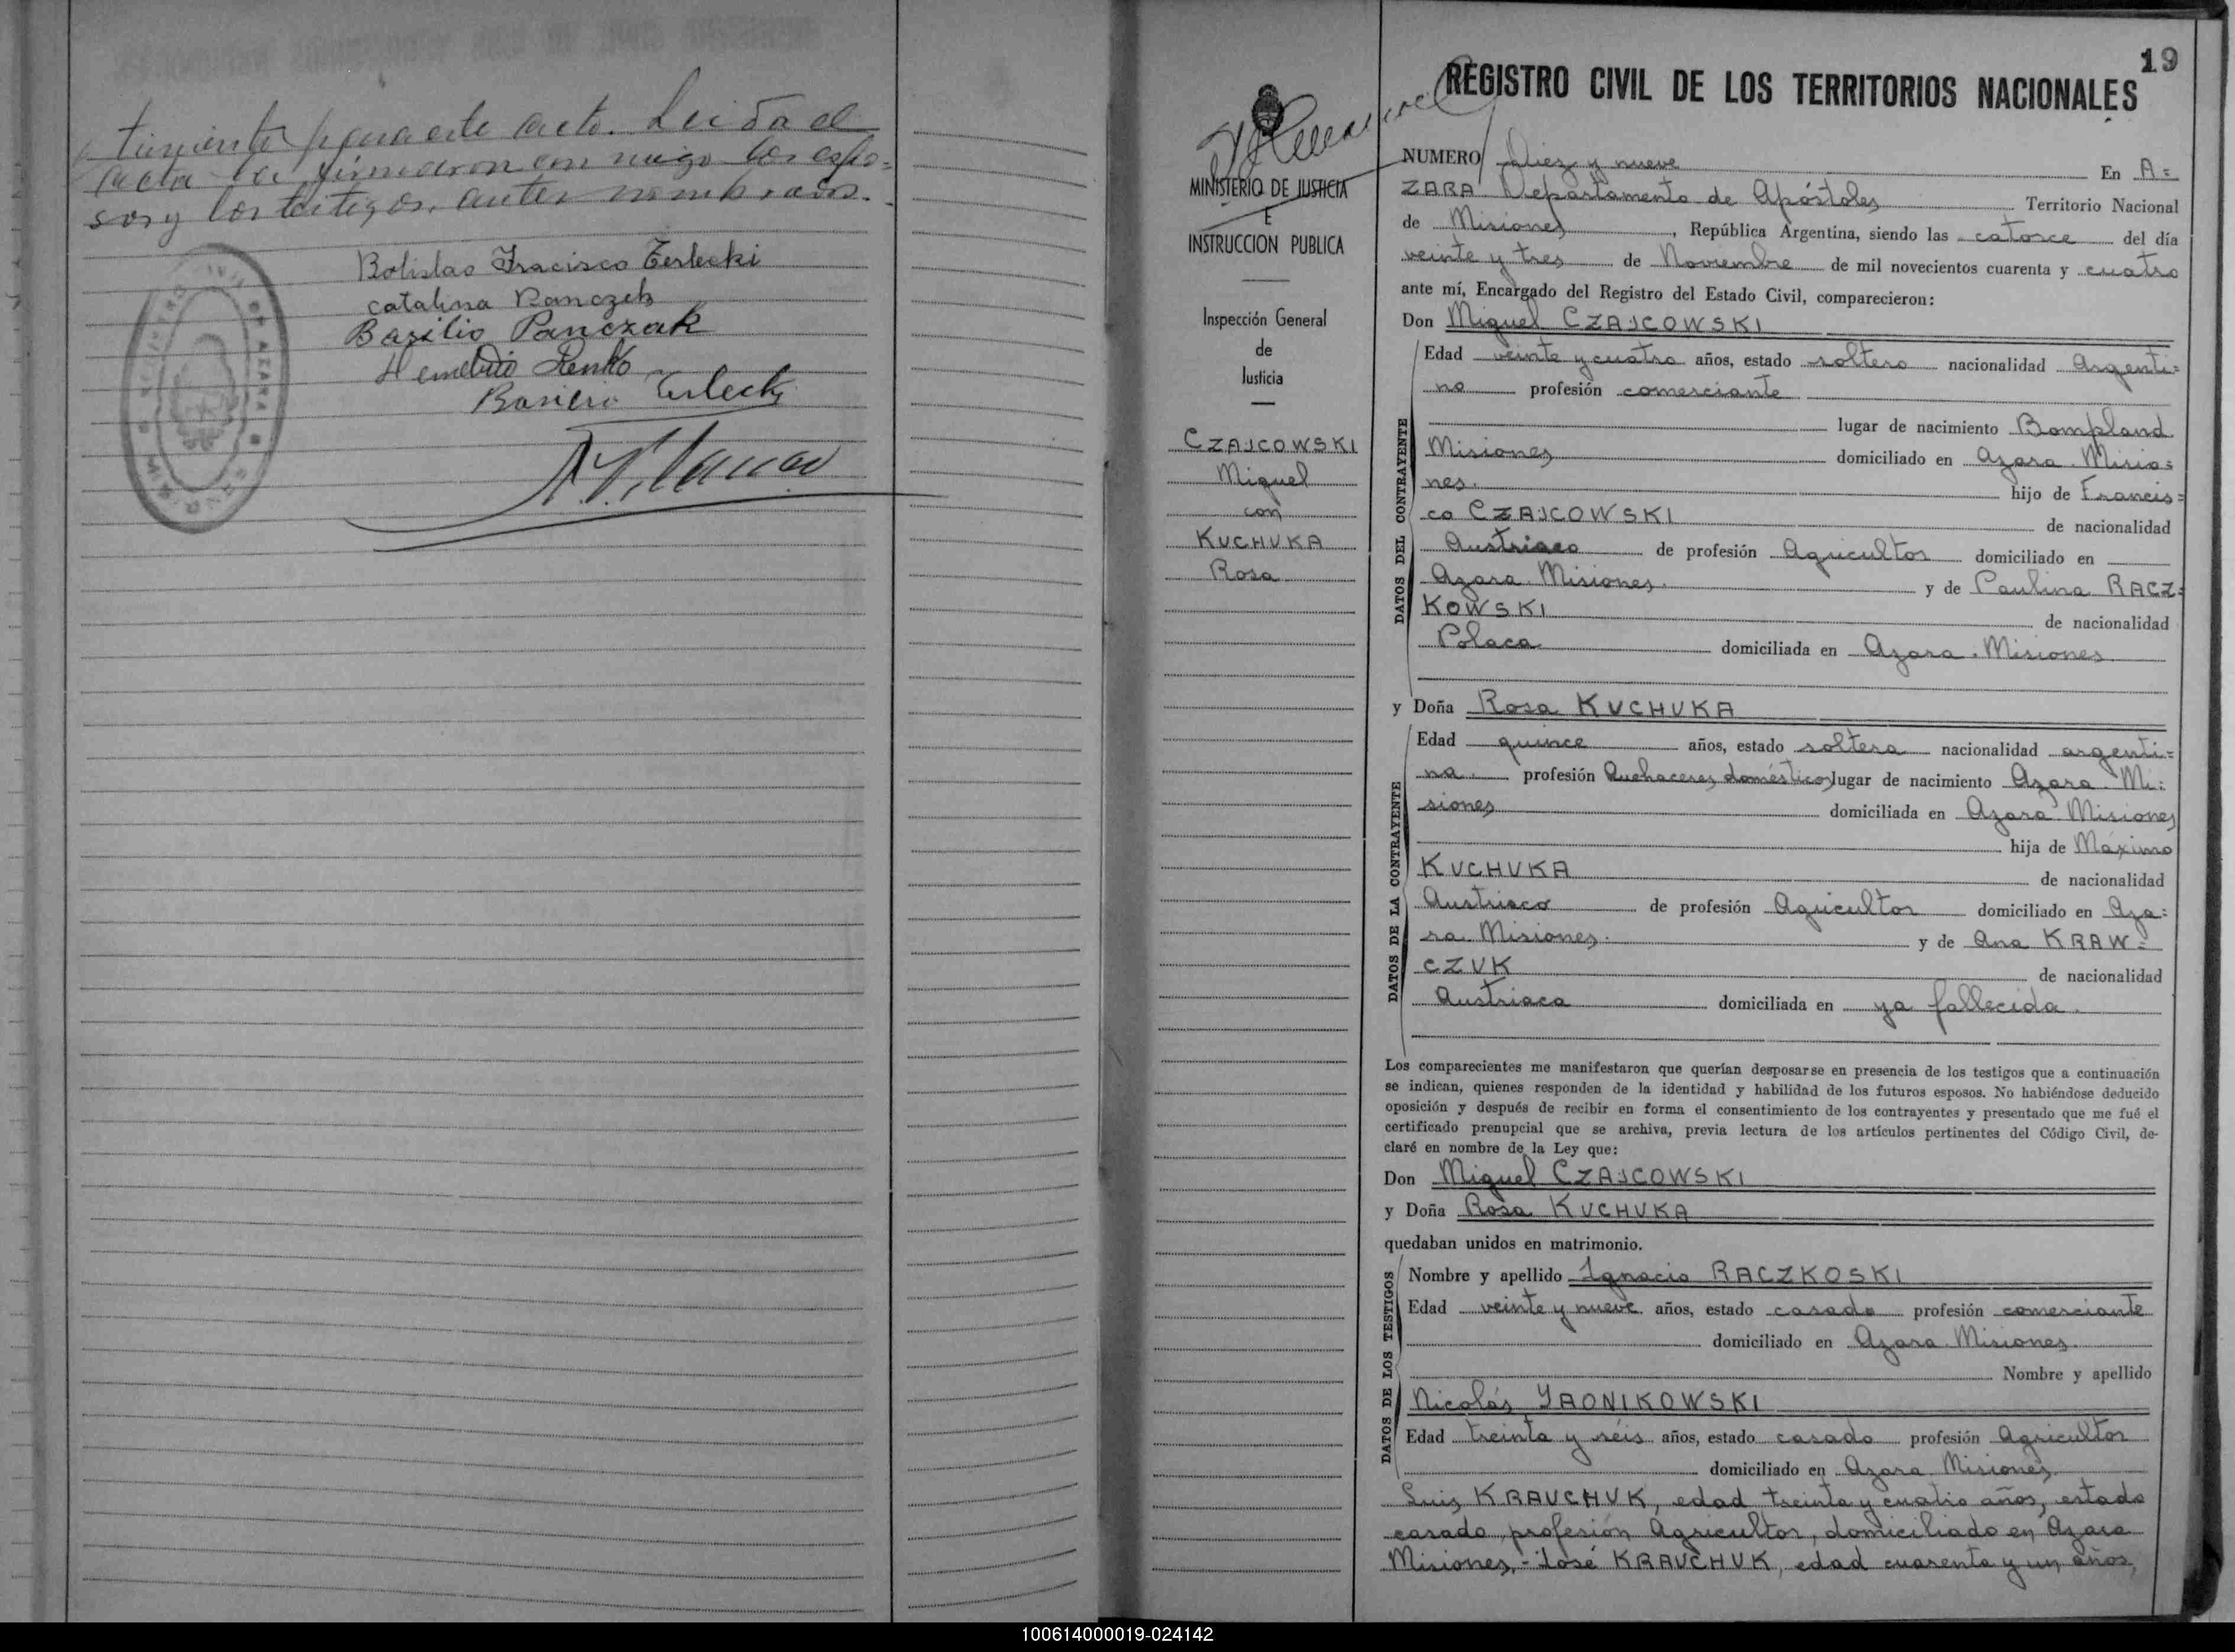 timiento para este acto. Leida el
acta la firmaron conmigo los espo=
sos y los testigos, antes nombrados.
Bolislao Fracisco Terlecki
catalina Panczek
Basilio Panczak
Renko
Basilio Terlecki
REGISTRO CIVIL DE AZARA
19
REGISTRO CIVIL DE LOS TERRITORIOS NACIONALES
MINISTERIO DE JUSTICIA
E
INSTRUCCION PUBLICA
Inspección General
de
Justicia
CZAJCOWSKI
Miguel
con
KUCHUKA
Rosa
NUMERO Diez y nueve En A=
ZARA Departamento de Apóstoles Territorio Nacional
de Misiones, República Argentina, siendo las catorce del día
veinte y tres de Noviembre de mil novecientos cuarenta y cuatro
ante mí, Encargado del Registro del Estado Civil, comparecieron:
Don Miguel CZAJCOWSKI
DATOS DEL CONTRAYENTE
Edad veinte y cuatro años, estado soltero nacionalidad Argenti=
no profesión comerciante
lugar de nacimiento Bompland
Misiones domiciliado en Azara. Misio=
nes. hijo de Francis=
co CZAJCOWSKI de nacionalidad
Austriaco de profesión Agricultor domiciliado en
Azara Misiones. y de Paulina RACZ=
KOWSKI de nacionalidad
Polaca domiciliada en Azara. Misiones
y Doña Rosa KUCHUKA
DATOS DE LA CONTRAYENTE
Edad quince años, estado soltera nacionalidad argenti=
na. profesión Quehaceres domésticos lugar de nacimiento Azara. Mi=
siones domiciliada en Azara Misiones
hija de Máximo
KUCHUKA de nacionalidad
Austriaco de profesión Agricultor domiciliado en Aza=
ra. Misiones. y de Ana KRAW=
CZUK de nacionalidad
Austriaca domiciliada en ya fallecida.
Los comparecientes me manifestaron que querían desposarse en presencia de los testigos que a continuación
se indican, quienes responden de la identidad y habilidad de los futuros esposos. No habiéndose deducido
oposición y después de recibir en forma el consentimiento de los contrayentes y presentado que me fué el
certificado prenupcial que se archiva, previa lectura de los artículos pertinentes del Código Civil, de-
claré en nombre de la Ley que:
Don Miguel CZAJCOWSKI
y Doña Rosa KUCHUKA
quedaban unidos en matrimonio.
DATOS DE LOS TESTIGOS
Nombre y apellido Ignacio RACZKOSKI
Edad veinte y nueve años, estado casado profesión comerciante
domiciliado en Azara. Misiones.
Nombre y apellido
Nicolás YAONIKOWSKI
Edad treinta y séis años, estado casado profesión Agricultor
domiciliado en Azara. Misiones.
Luis KRAUCHUK, edad treinta y cuatro años, estado
casado, profesión Agricultor, domiciliado en Azara
Misiones.- José KRAUCHUK, edad cuarenta y un años,
100614000019-024142